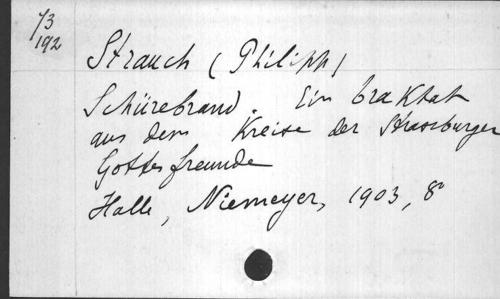 73
192
Strauch (Philipp)
Schürebrand. Ein traktat
aus dem Kreise der Strassburger
Gottesfreunde
Halle, Niemeyer, 1903, 8°